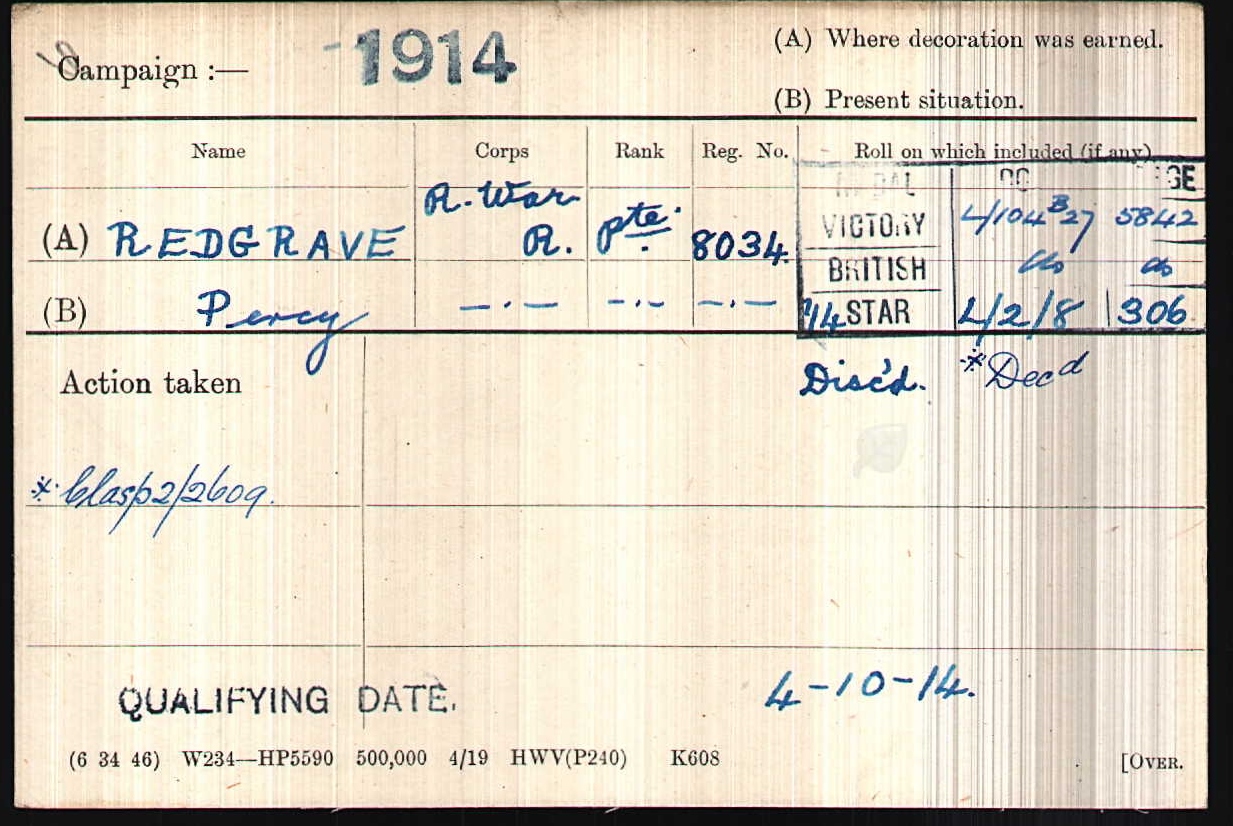 Campaign :— 1914
(A) Where decoration was earned.
(B) Present situation.
Name Corps Rank Reg. No. Roll on which included (if any)
R. War
(A) REDGRAVE R. Pte. 8034.
VICTORY L/104B27 5842
BRITISH do do
(B) Percy —·— —·— —·— 14 STAR L/2/8 306
Action taken Disc'd. *Decd
* Clasp 2/2609.
QUALIFYING DATE. 4-10-14.
(6 34 46) W234—HP5590 500,000 4/19 HWV(P240) K608 [OVER.